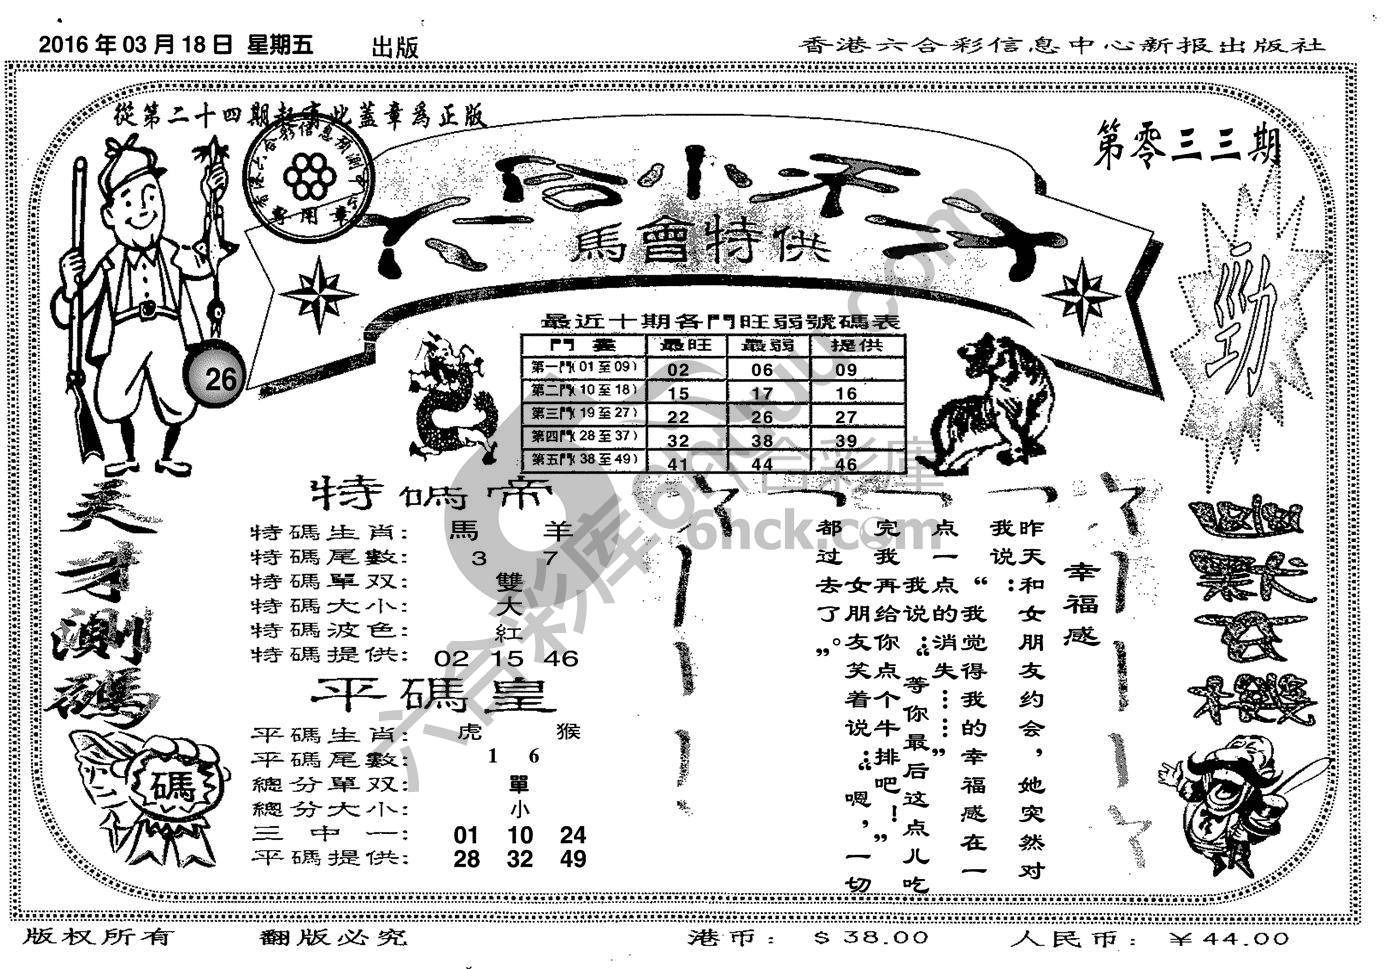 2016年03月18日 星期五 出版
香港六合彩信息中心新报出版社
從第二十四期起蓋此章爲正版
第零三三期
專用章
六合小天才
馬會特供
勁
26
最近十期各門旺弱號碼表
門 最旺 最弱 提供
第一門(01至09) 02 06 09
第二門(10至18) 15 17 16
第三門(19至27) 22 26 27
第四門(28至37) 32 38 39
第五門(38至49) 41 44 46
天才測碼
碼
特碼帝
特碼生肖: 馬 羊
特碼尾數: 3 7
特碼單双: 雙
特碼大小: 大
特碼波色: 紅
特碼提供: 02 15 46
平碼皇
平碼生肖: 虎 猴
平碼尾數: 1 6
總分單双: 單
總分大小: 小
三中一: 01 10 24
平碼提供: 28 32 49
幸福感
昨天和女朋友约会,她突然对
我说:“我觉得我的幸福感在一
点一点的消失……”
我说:“等你最后这点儿吃
完我再给你点个牛排吧!”
女朋友笑着说:“嗯,一切
都过去了。”
六合彩库 6hck.com
版权所有 翻版必究 港币: $38.00 人民币: ¥44.00